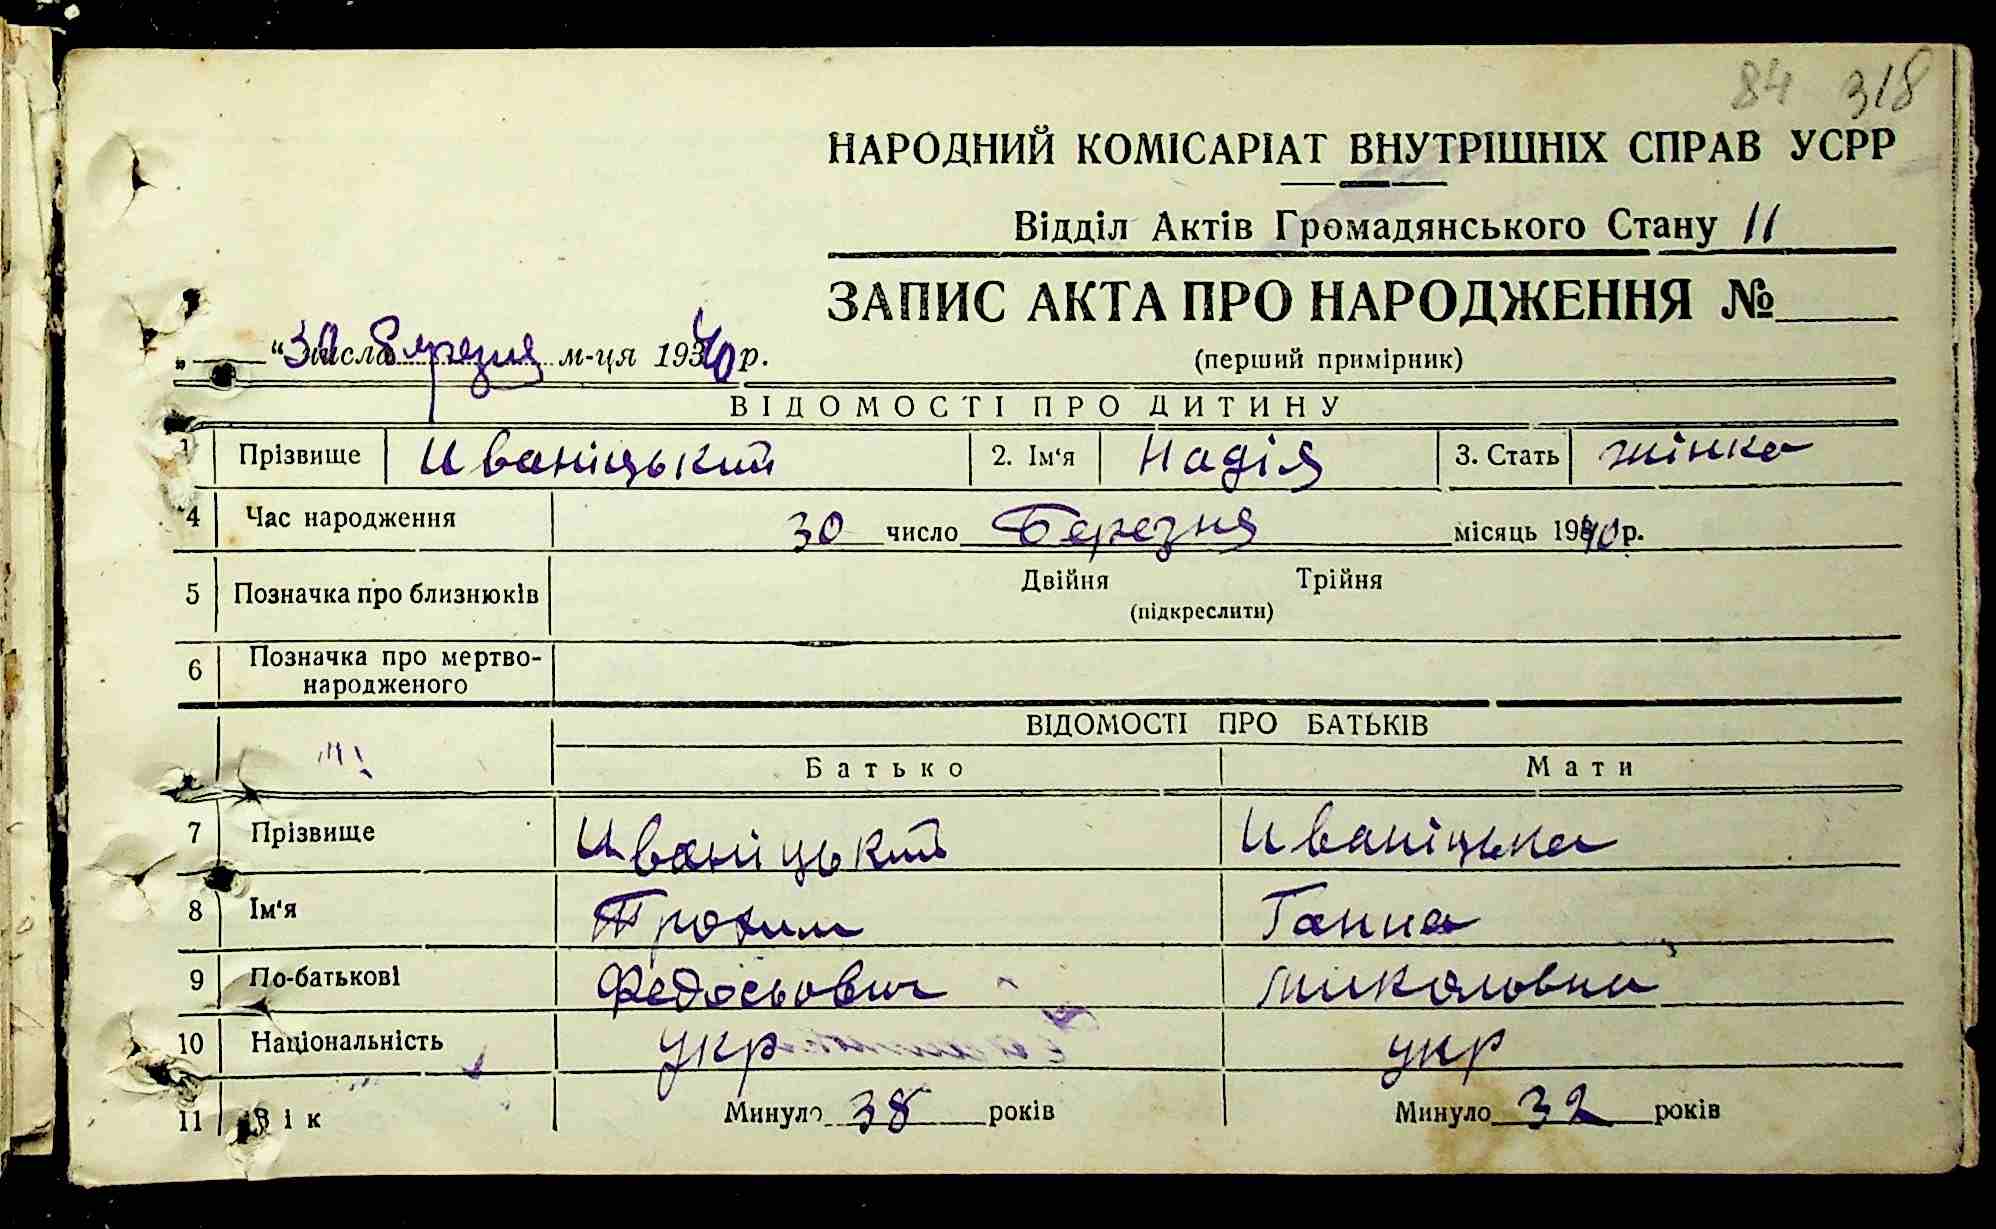 84 318
НАРОДНИЙ КОМІСАРІАТ ВНУТРІШНІХ СПРАВ УСРР
Відділ Актів Громадянського Стану 11
ЗАПИС АКТА ПРО НАРОДЖЕННЯ №
(перший примірник)
„ “ 30 числа Березня м-ця 1940 р.
ВІДОМОСТІ ПРО ДИТИНУ
1 Прізвище Иваніцький 2. Ім‘я Надія 3. Стать жінка
4 Час народження 30 число Березня місяць 1940 р.
5 Позначка про близнюків Двійня Трійня
(підкреслити)
6 Позначка про мертво-
народженого
ВІДОМОСТІ ПРО БАТЬКІВ
Батько Мати
7 Прізвище Иваніцький Иваніцька
8 Ім‘я Трохим Ганна
9 По-батькові Федосьович Миколовна
10 Національність укр укр
11 Вік Минуло 38 років Минуло 32 років